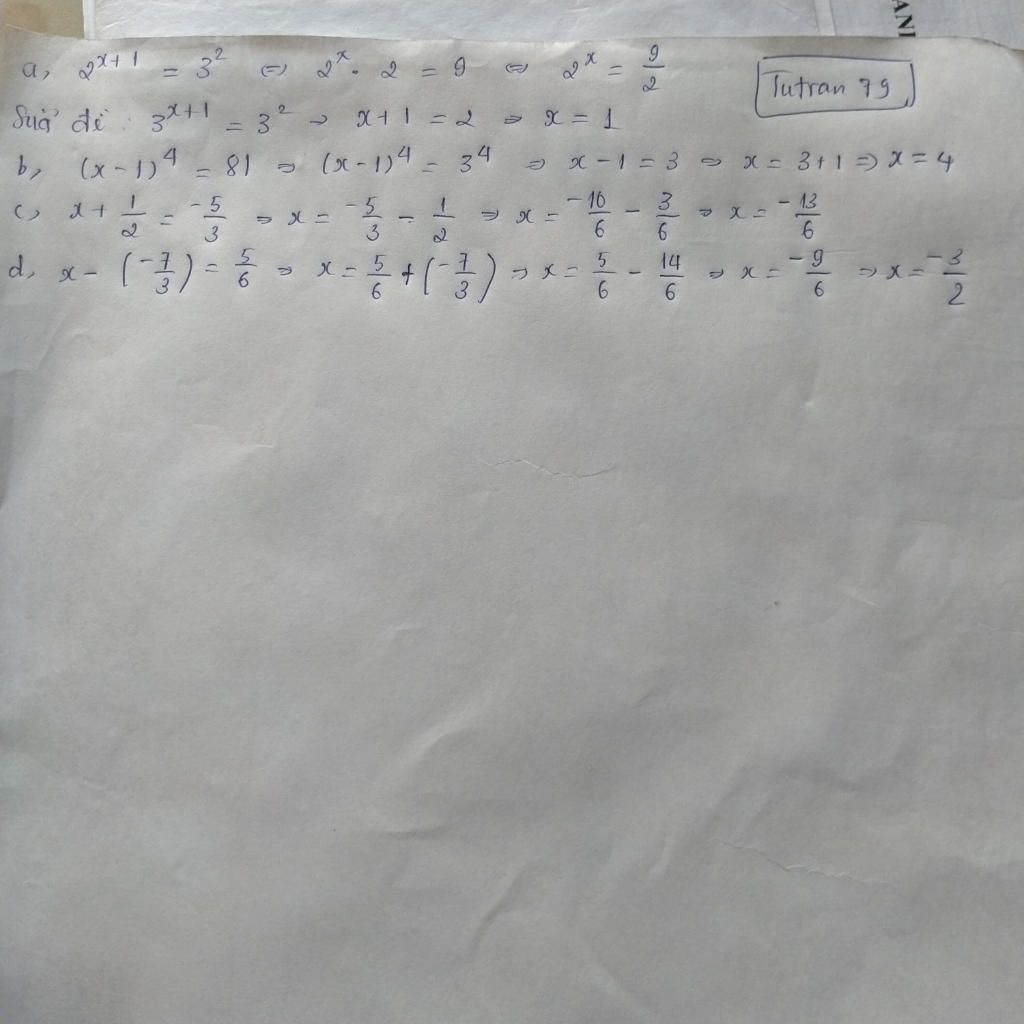 ANI
a, 2^{x+1} = 3^2 ⇔ 2^x . 2 = 9 ⇔ 2^x = 9/2
Tutran 79
Sửa đề : 3^{x+1} = 3^2 ⇒ x+1 = 2 ⇒ x = 1
b, (x-1)^4 = 81 ⇒ (x-1)^4 = 3^4 ⇒ x-1 = 3 ⇒ x = 3+1 ⇒ x = 4
c, x + 1/2 = -5/3 ⇒ x = -5/3 - 1/2 ⇒ x = -10/6 - 3/6 ⇒ x = -13/6
d, x - (-7/3) = 5/6 ⇒ x = 5/6 + (-7/3) ⇒ x = 5/6 - 14/6 ⇒ x = -9/6 ⇒ x = -3/2